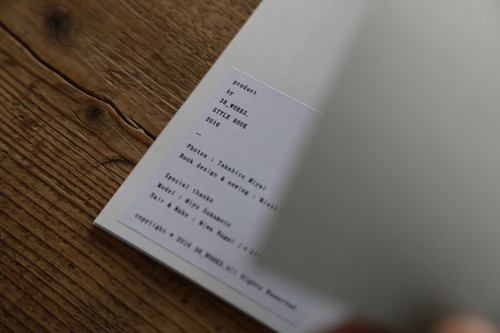 product
by
DR_WORKS.
STYLE BOOK
2016
—
Photos : Takahiro Miyai
Book design & sewing :
Special thanks
Model : Miyu Sakamoto
Hair & Make : Miwa Nagai
copyright © 2016 DR_WORKS.All Rights Reserved.